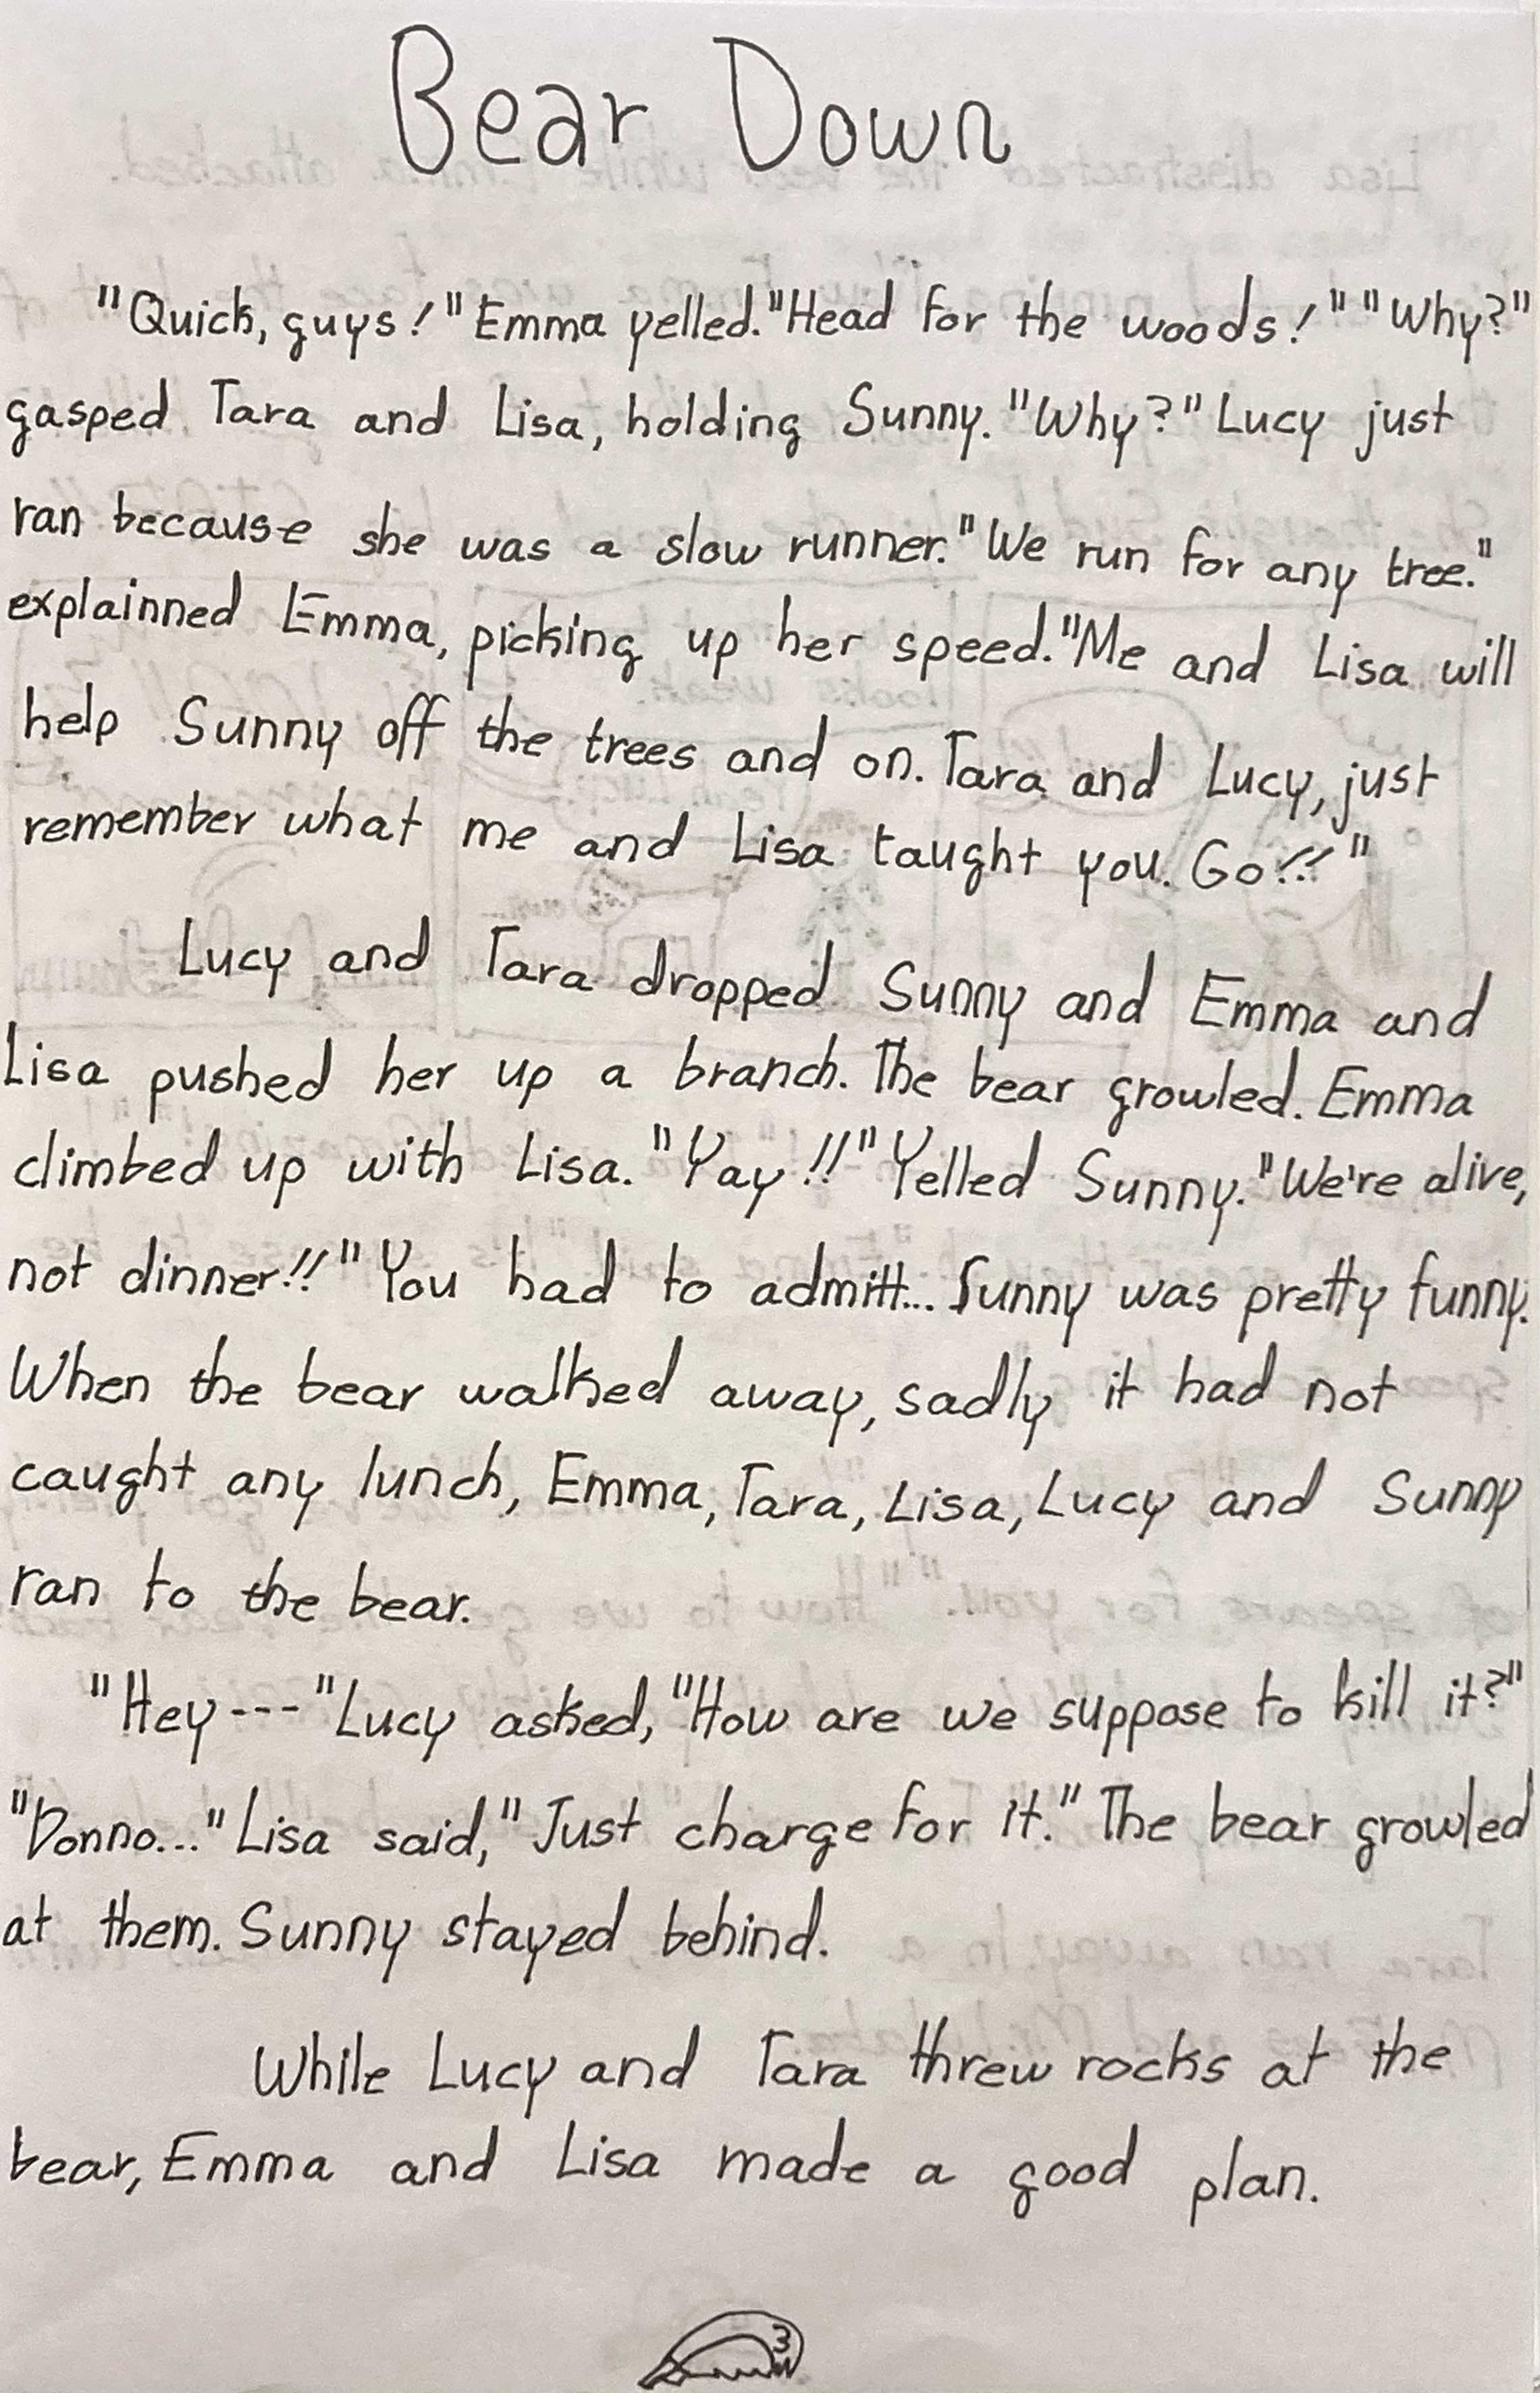 Bear Down
"Quick, guys!" Emma yelled. "Head for the woods!" "Why?"
gasped Tara and Lisa, holding Sunny. "Why?" Lucy just
ran because she was a slow runner. "We run for any tree."
explainned Emma, picking up her speed. "Me and Lisa will
help Sunny off the trees and on. Tara and Lucy, just
remember what me and Lisa taught you. Go!!"
Lucy and Tara dropped Sunny and Emma and
Lisa pushed her up a branch. The bear growled. Emma
climbed up with Lisa. "Yay!!" Yelled Sunny. "We're alive,
not dinner!!" You had to admitt... Sunny was pretty funny.
When the bear walked away, sadly it had not
caught any lunch, Emma, Tara, Lisa, Lucy and Sunny
ran to the bear.
"Hey---" Lucy asked, "How are we suppose to kill it?"
"Donno..." Lisa said, "Just charge for it." The bear growled
at them. Sunny stayed behind.
While Lucy and Tara threw rocks at the
bear, Emma and Lisa made a good plan.
3